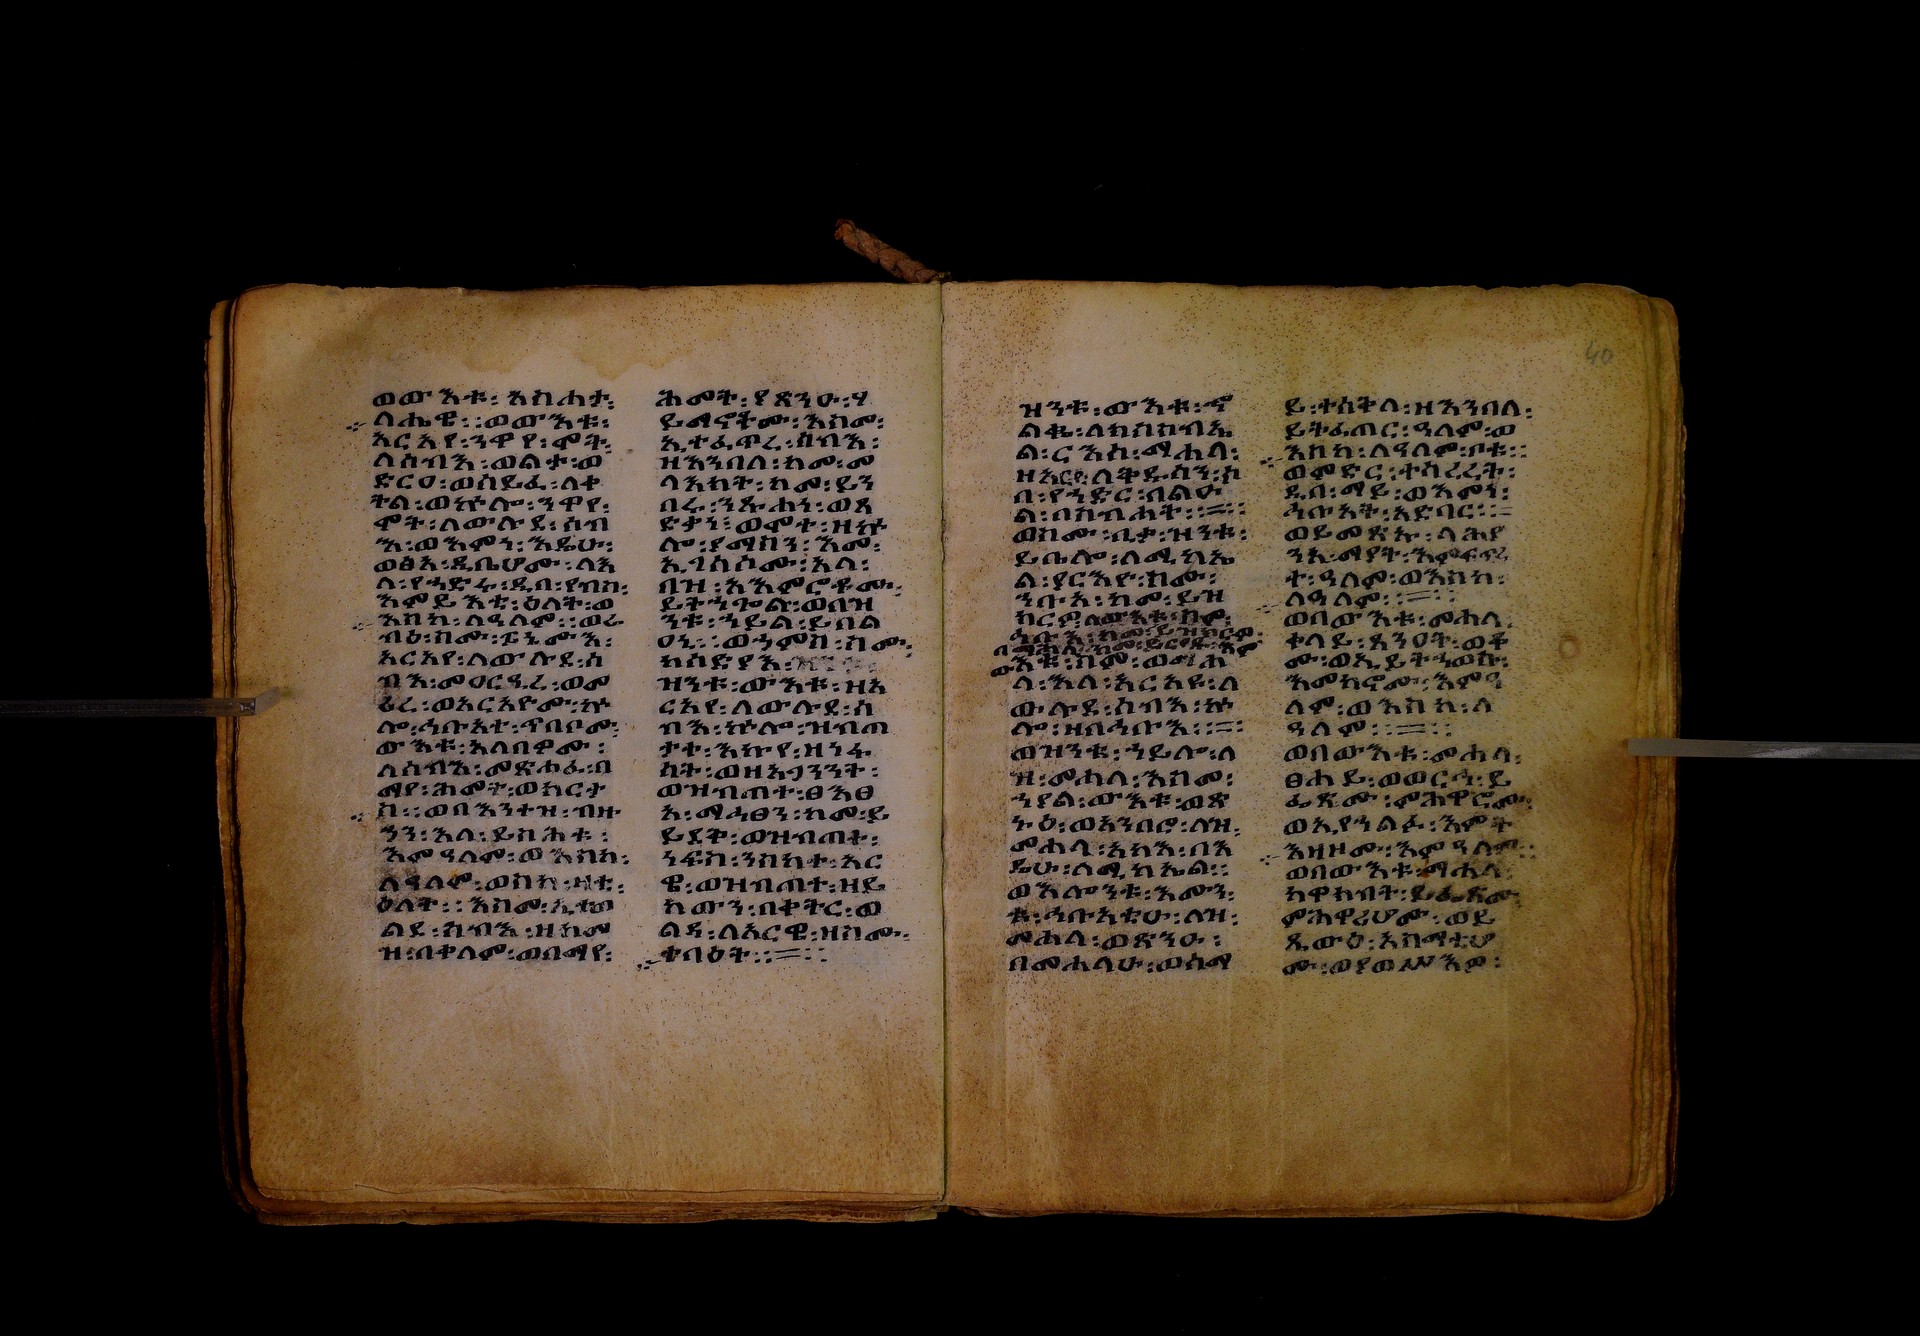 ወውእቱ፡ አስሐተ፡
ለሔዋ፡፡ወውእቱ፡
አርአየ፡ንዋየ፡ሞት፡
ለሰብእ፡ወልታ፡ወ
ድርዐ፡ወሰይፈ፡ለቀ
ትል፡ወኵሎ፡ንዋየ፡
ሞት፡ለውሉደ፡ሰብ
እ፡ወእምነ፡እዴሁ፡
ወፅአ፡ዲቤሆሙ፡ለእ
ለ፡የኀድሩ፡ዲበ፡የብስ፡
እምይእቲ፡ዕለት፡ወ
እስከ፡ለዓለም፡፡ወራ
ብዕ፡ስሙ፡ፔኔሙእ፡
አርአየ፡ለውሉደ፡ሰ
ብእ፡መዐርዒረ፡ወመ
ሪረ፡ወአርአዮሙ፡ኵ
ሎ፡ኀቡአተ፡ጥበቦሙ፡
ውእቱ፡አለበዎሙ፡
ለሰብእ፡መጽሐፈ፡በ
ማየ፡ሕመት፡ወክርታ
ስ፡፡ወበእንተዝ፡ብዙ
ኃን፡እለ፡ይስሕቱ፡
እምዓለም፡ወእስከ፡
ለዓለም፡ወእስከ፡ዛቲ፡
ዕለት፡፡እስመ፡ኢተወ
ልደ፡ሰብእ፡ዘከመ
ዝ፡በቀለም፡ወበማየ፡
ሕመት፡ያጽንዑ፡ሃ
ይማኖቶሙ፡እስመ፡
ኢተፈጥረ፡ሰብእ፡
ዘእንበለ፡ከመ፡መ
ላእክት፡ከመ፡ይን
በሩ፡ንጹሐነ፡ወጻ
ድቃነ፡ወሞተ፡ዘኵ
ሎ፡ያማስን፡እመ፡
ኢገሰሶሙ፡አላ፡
በዝ፡አእምሮቶሙ፡
ይትኃጐሉ፡ወበዝ
ንቱ፡ኃይል፡ይበል
ዐኒ፡፡ወኃምስ፡ስሙ፡
ከስድያእ፡
ዝንቱ፡ውእቱ፡ዘአ
ርአየ፡ለውሉደ፡ሰ
ብእ፡ኵሎ፡ዝብጠ
ታተ፡እኩየ፡ዘነፋ
ሳት፡ወዘአጋንንት፡
ወዝብጠተ፡ፅእፅ
እ፡ማኅፀን፡ከመ፡ይ
ደይቅ፡ወዝብጠተ፡
ነፍስ፡ንስከተ፡አር
ዌ፡ወዝብጠተ፡ዘይ
ከውን፡በቀትር፡ወ
ልዳ፡ለአርዌ፡ዘስሙ፡
ተባዕት፡፡
ዝንቱ፡ውእቱ፡
ል፡ርእሰ፡ማሐላ፡
ወስሙ፡ቤቃ፡ዝንቱ፡
ይቤሎ፡ለሚካኤ
ል፡ያርእዮ፡ስሙ፡
ኅቡአ፡ከመ፡ይዝ
ለ፡እለ፡አርአዩ፡ለ
ውሉደ፡ሰብእ፡ኵ
ሎ፡ዘበኅቡእ፡፡
ወዝንቱ፡ኃይሉ፡ለ
ዝ፡መሐላ፡እስመ፡
ኃያል፡ውእቱ፡ወጽ
ኑዕ፡ወአንበሮ፡ለዝ፡
መሐላ፡አካእ፡በእ
ዴሁ፡ለሚካኤል፡፡
ወእሎንቱ፡እሙን
ቱ፡ኅቡአቲሁ፡ለዝ፡
መሐላ፡ወጽንዑ፡
በመሐላሁ፡ወሰማ
ይ፡ተሰቅለ፡ዘእንበለ፡
ይትፈጠር፡ዓለም፡ወ
እስከ፡ለዓለም፡ቦቱ፡፡
ወምድር፡ተሳረረት፡
ዲበ፡ማይ፡ወእምነ፡
ኅቡአት፡አድባር፡፡
ወይመጽኡ፡ላሕያ
ን፡ማያት፡እምፍጥረ
ተ፡ዓለም፡ወእስከ፡
ለዓለም፡፡
ወበውእቱ፡መሐላ፡
ቀላይ፡ጸንዐት፡ወቆ
ሙ፡ወኢይትኀወኩ፡
እመካኖሙ፡እምዓ
ለም፡ወእስከ፡ለ
ዓለም፡፡
ወበውእቱ፡መሐላ፡
ፀሐይ፡ወወርኅ፡ይ
ፌጽሙ፡ምሕዋሮሙ፡
ወኢየኀልፉ፡እምት
እዛዞሙ፡እምዓለም፡፡
ወበውእቱ፡ማሐላ፡
ከዋክብት፡ይፌጽሙ፡
ምሕዋሪሆሙ፡ወይ
ጼውዕ፡አስማቲሆ
ሙ፡ወያወሥእዎ፡
40